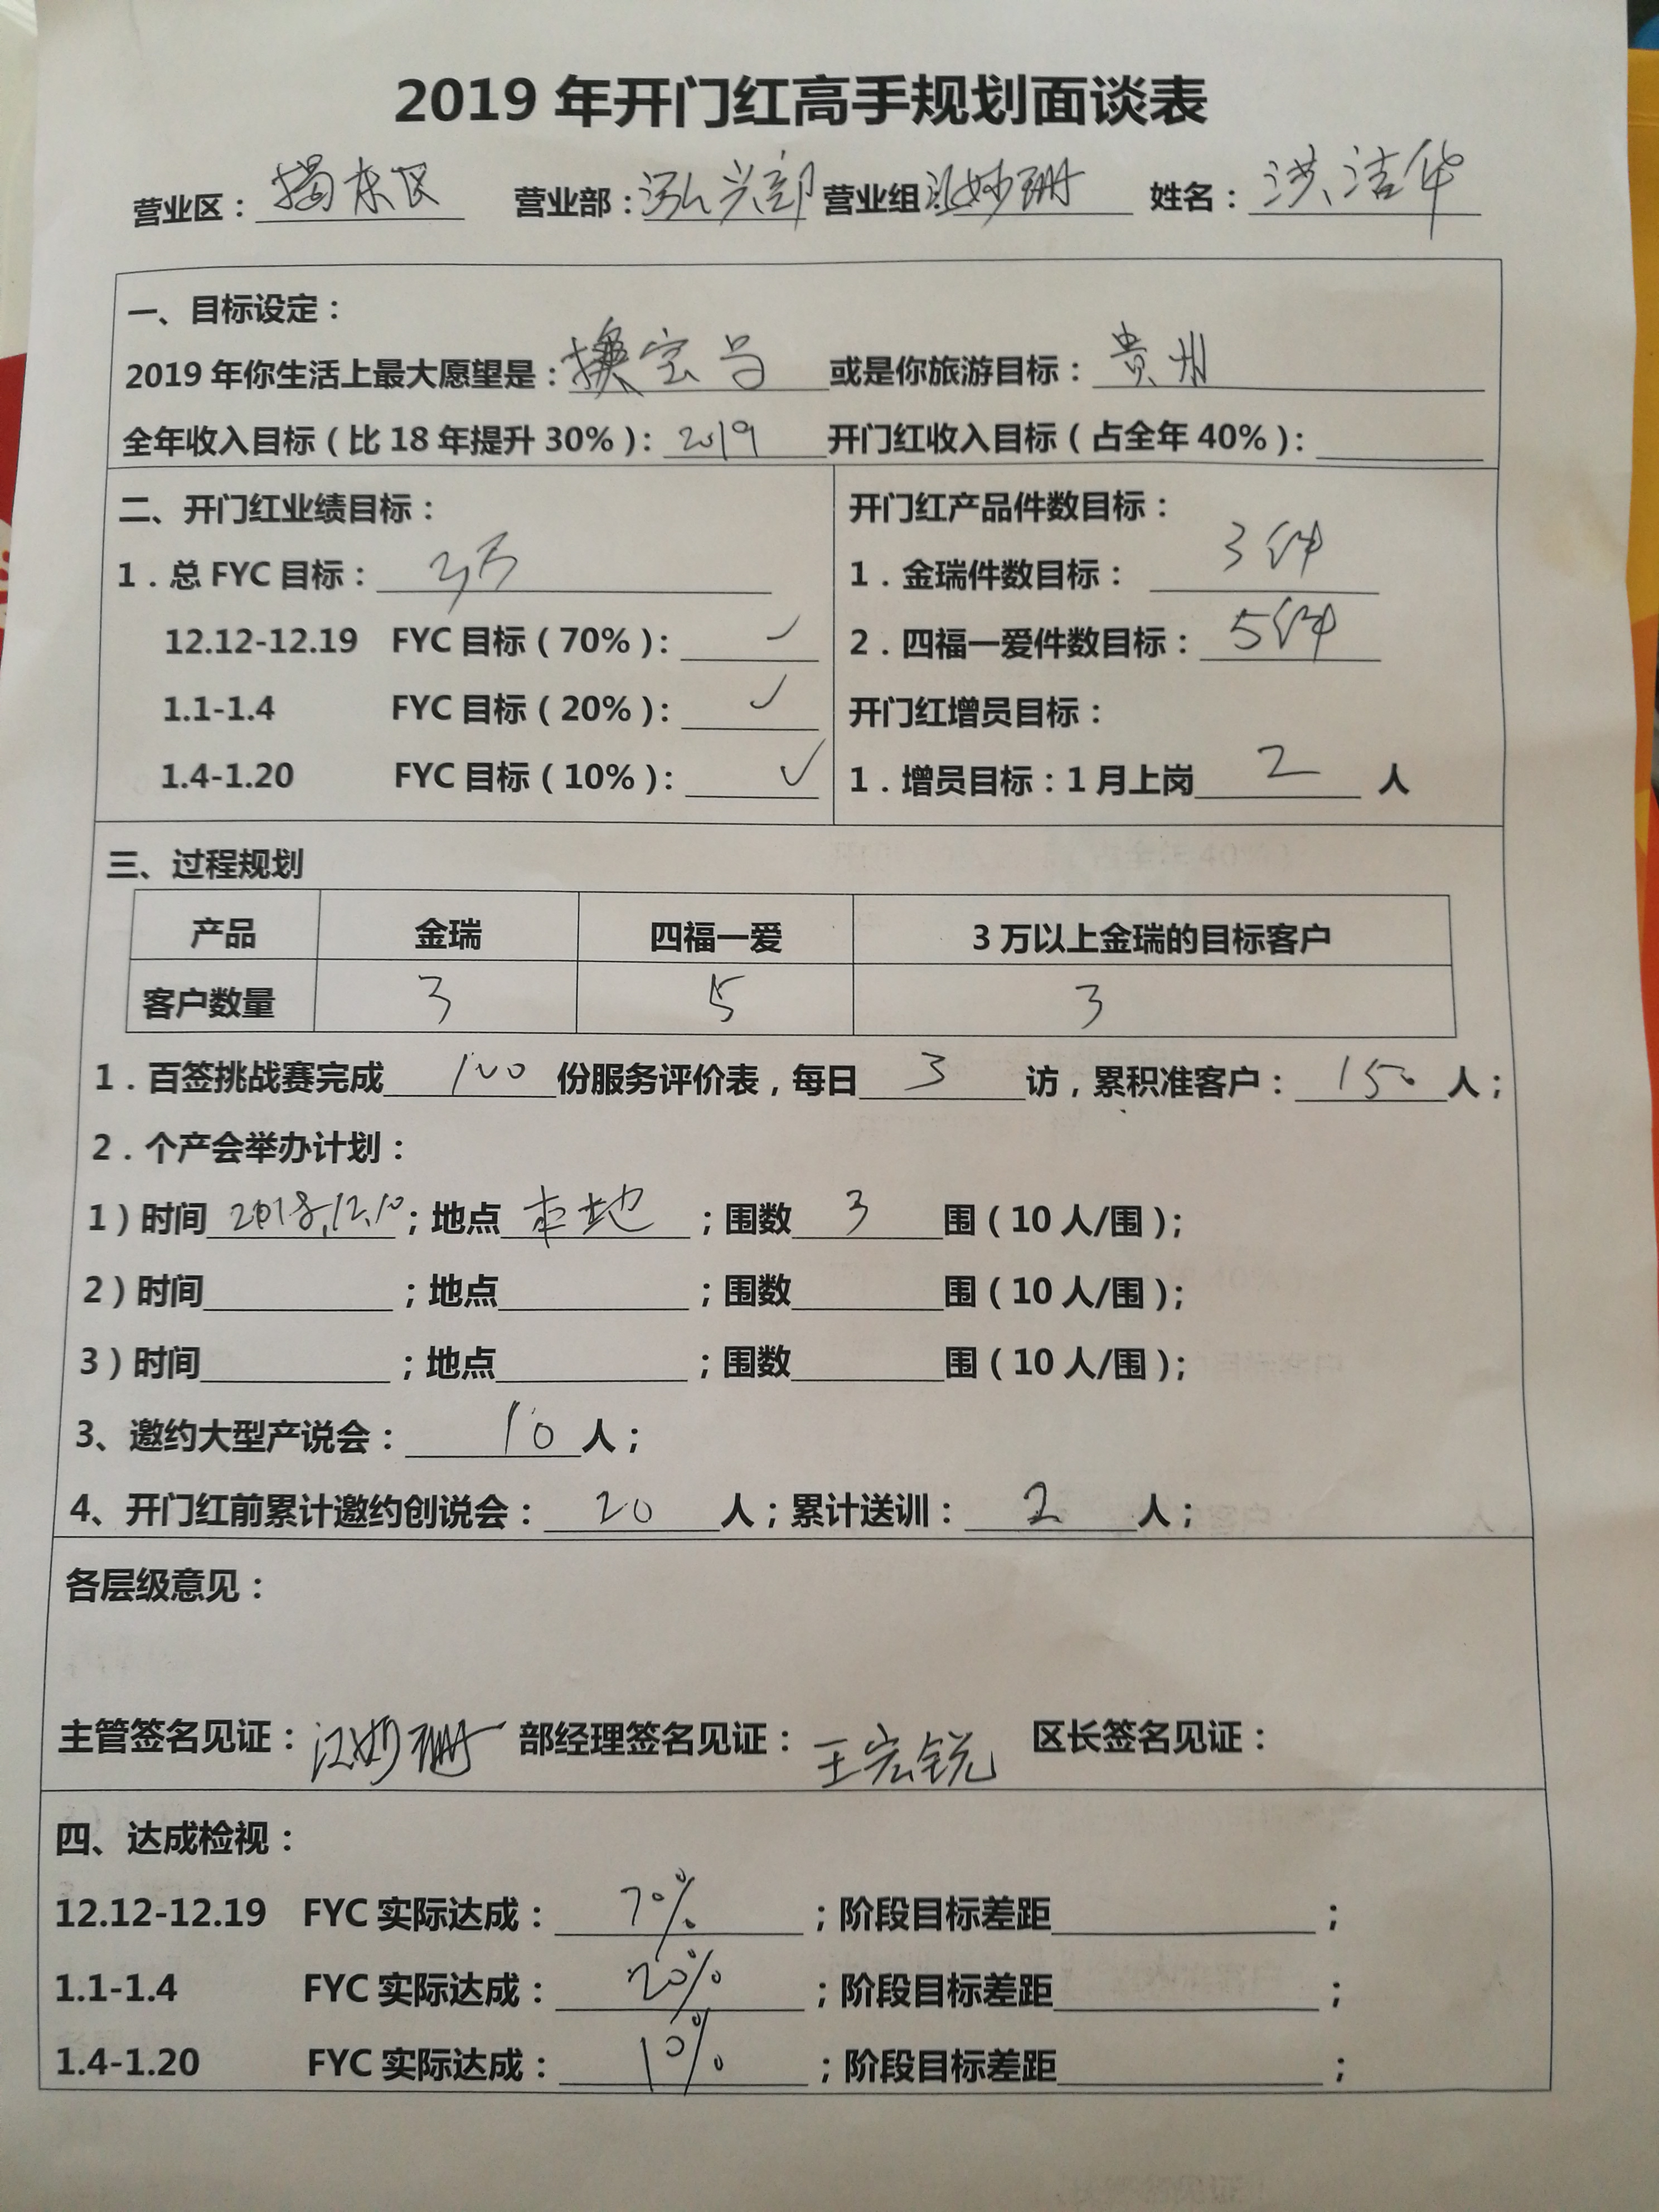 2019 年开门红高手规划面谈表
营业区：揭东区 营业部：泓兴部 营业组 江妙珊 姓名：洪洁华
一、目标设定：
2019 年你生活上最大愿望是：换宝马 或是你旅游目标：贵州
全年收入目标（比 18 年提升 30%）：2019 开门红收入目标（占全年 40%）：
二、开门红业绩目标：
1．总 FYC 目标：3万
12.12-12.19 FYC 目标（70%）：✓
1.1-1.4 FYC 目标（20%）：✓
1.4-1.20 FYC 目标（10%）：✓
开门红产品件数目标：
1．金瑞件数目标：3件
2．四福一爱件数目标：5件
开门红增员目标：
1．增员目标：1 月上岗 2 人
三、过程规划
产品 金瑞 四福一爱 3 万以上金瑞的目标客户
客户数量 3 5 3
1．百签挑战赛完成 100 份服务评价表，每日 3 访，累积准客户：150 人；
2．个产会举办计划：
1）时间 2018.12.10；地点 本地；围数 3 围（10 人/围）；
2）时间；地点；围数 围（10 人/围）；
3）时间；地点；围数 围（10 人/围）；
3、邀约大型产说会：10 人；
4、开门红前累计邀约创说会：20 人；累计送训：2 人；
各层级意见：
主管签名见证：江妙珊 部经理签名见证：王宏锐 区长签名见证：
四、达成检视：
12.12-12.19 FYC 实际达成：70%；阶段目标差距；
1.1-1.4 FYC 实际达成：20%；阶段目标差距；
1.4-1.20 FYC 实际达成：10%；阶段目标差距；